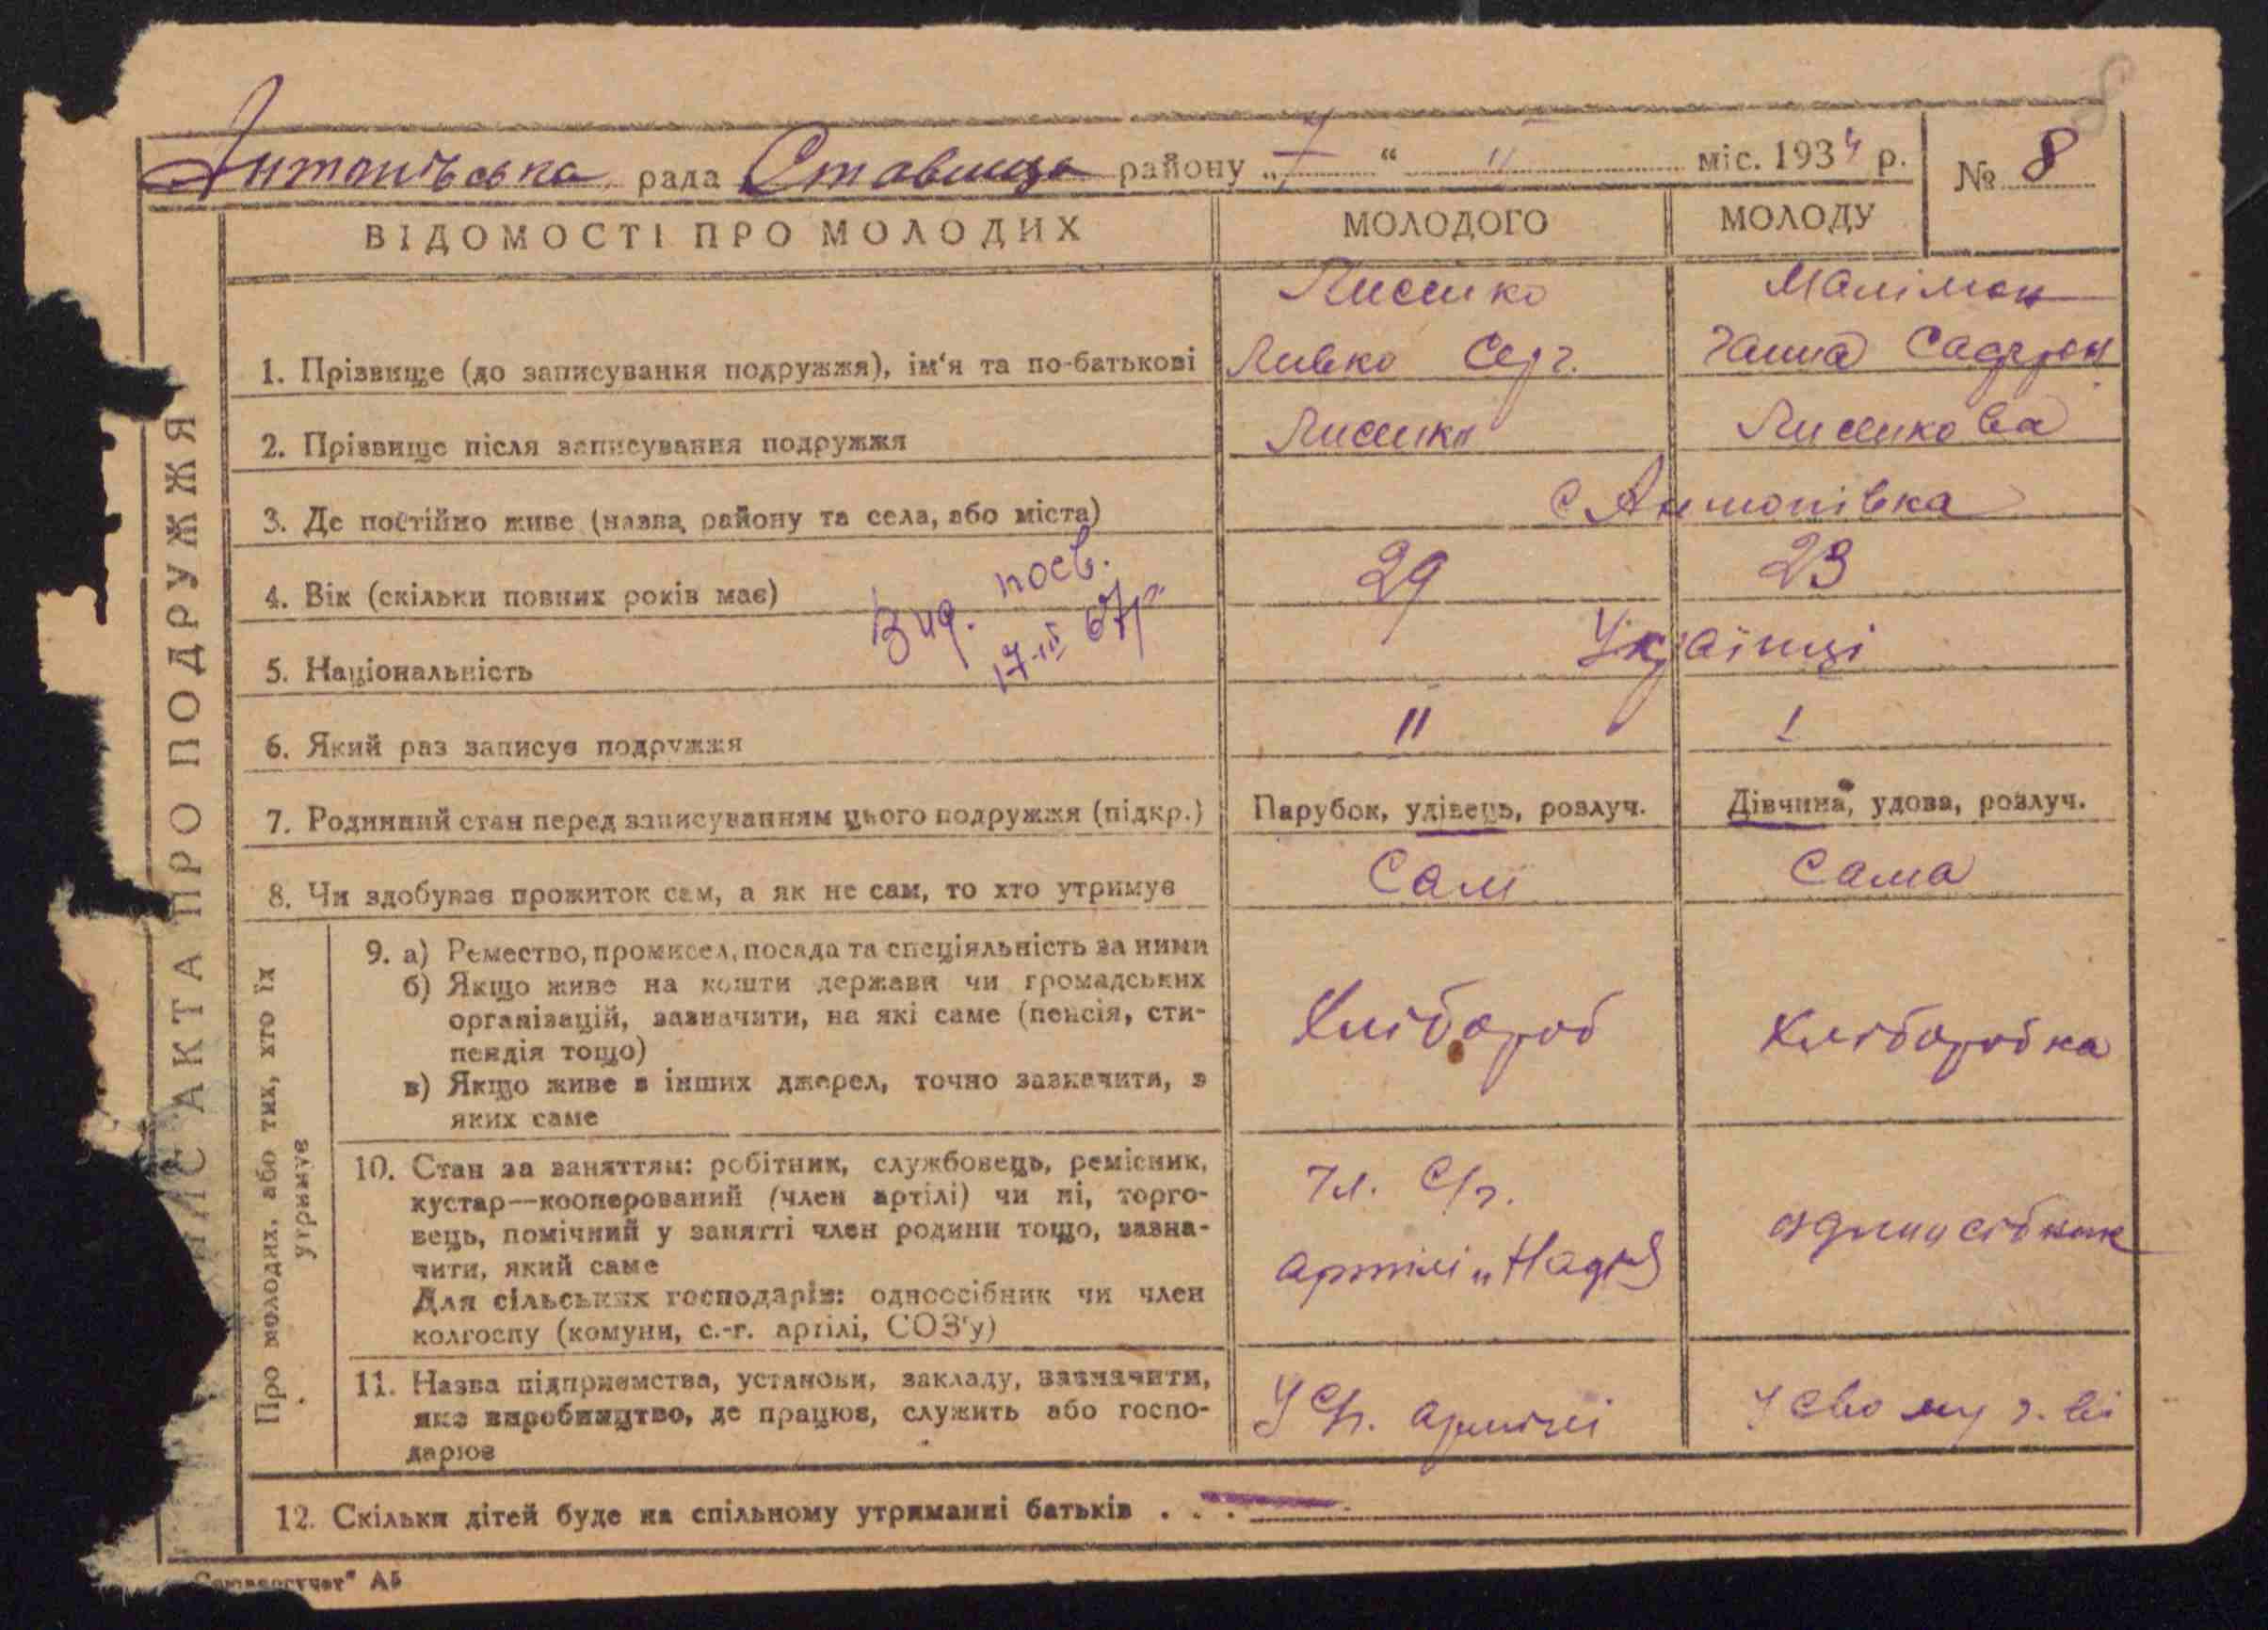 Антонівська рада Ставище району „7“ II міс. 1934 р. № 8
ВІДОМОСТІ ПРО МОЛОДИХ МОЛОДОГО МОЛОДУ
Лисенко Малімон
1. Прізвище (до записування подружжя), ім'я та по-батькові Левко Серг. Ганна
2. Прізвище після записування подружжя Лисенко Лисенкова
3. Де постійно живе (назва району та села, або міста) с Антонівка
4. Вік (скільки повних років має) 29 23
Вид. посв.
17-III 67р.
5. Національність Українці
6. Який раз записує подружжя II I
7. Родинний стан перед записуванням цього подружжя (підкр.) Парубок, удівець, розлуч. Дівчина, удова, розлуч.
8. Чи здобуває прожиток сам, а як не сам, то хто утримує Сам Сама
9. а) Ремество, промисел, посада та спеціяльність за ними
б) Якщо живе на кошти держави чи громадських
організацій, зазначити, на які саме (пенсія, сти-
пендія тощо)
в) Якщо живе з інших джерел, точно зазначити, з
яких саме
Хлібороб Хлібаробка
10. Стан за заняттям: робітник, службовець, ремісник,
кустар—кооперований (член артілі) чи ні, торго-
вець, помічний у занятті член родини тощо, зазна-
чити, який саме
Для сільських господарів: одноосібник чи член
колгоспу (комуни, с.-г. артілі, СОЗ'у)
Чл. С/г.
артілі „Надія
11. Назва підприємства, установи, закладу, зазначити,
яке виробництво, де працює, служить або госпо-
дарює
У С/г. артілі У свому г. ві
12. Скільки дітей буде на спільному утриманні батьків . . .
Про молодих, або тих, хто їх
утримує
АКТА ПРО ПОДРУЖЖЯ
А5